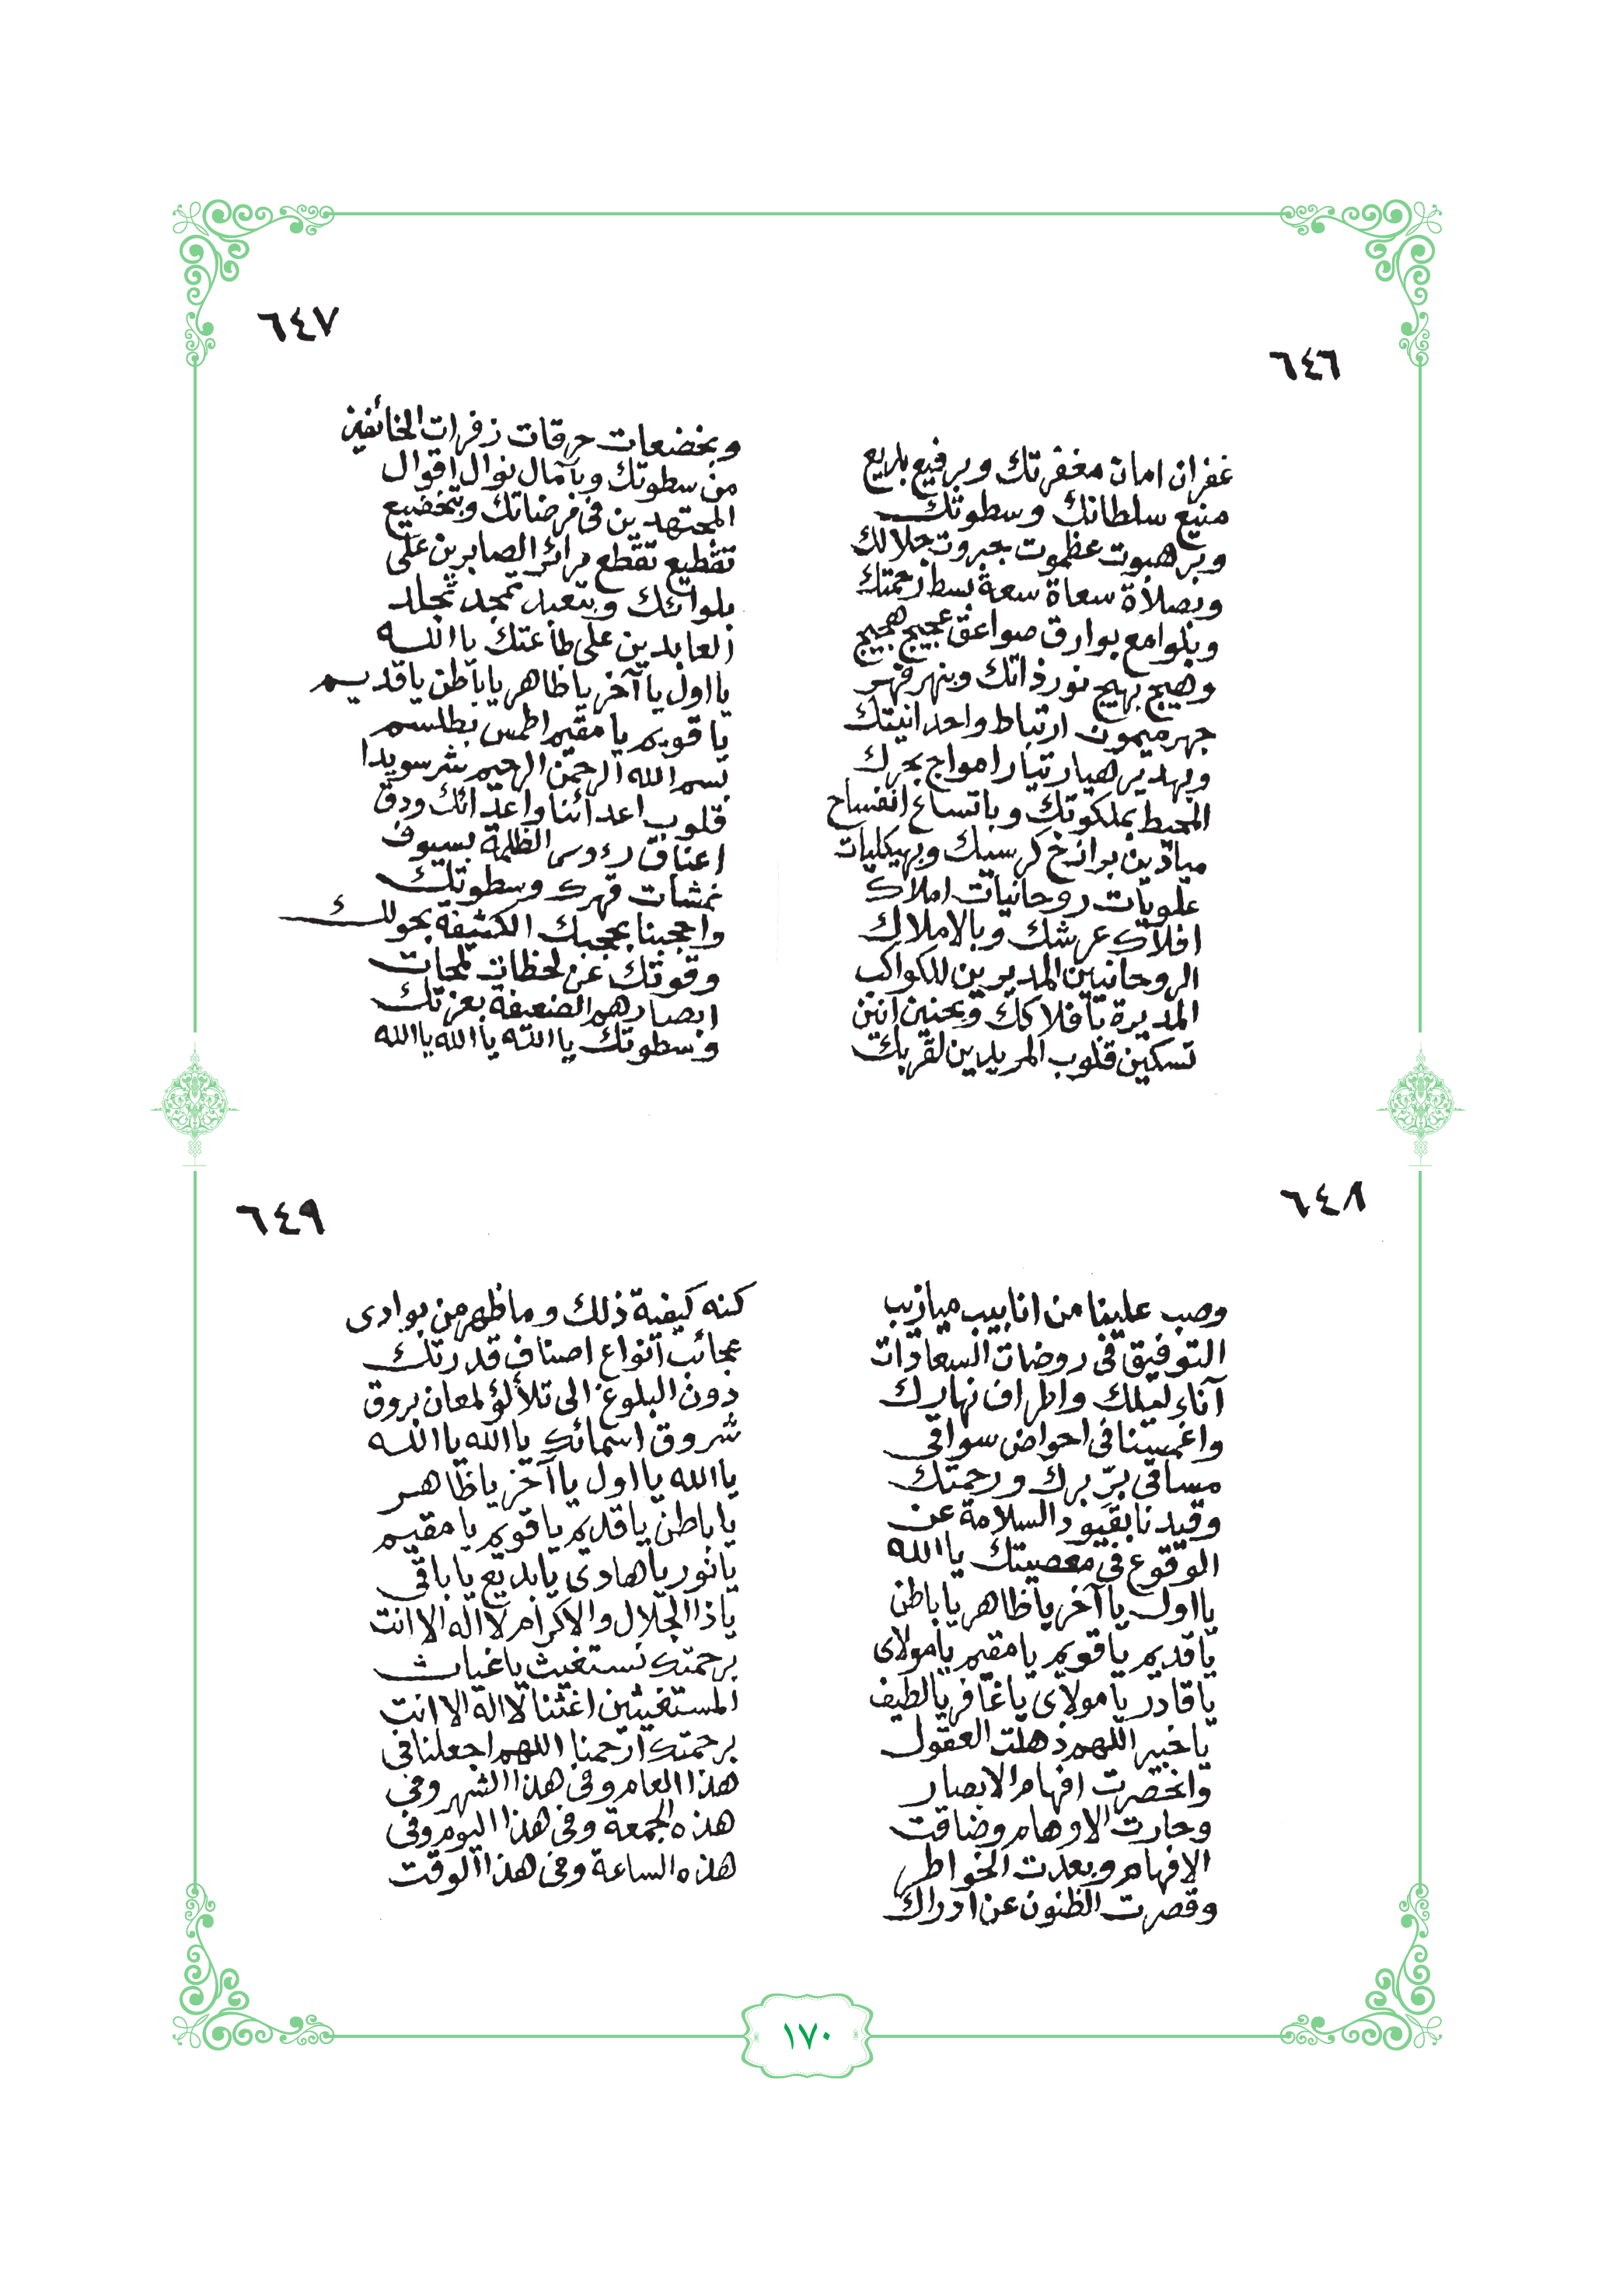 ٦٤٦
غفران امان مغفرتك وبرفيع بديع
منيع سلطانك وسطوتك
وبرهبوت عظموت جبروت جلالك
وبصلاة سعاة سعة بسط رحمتك
وبلوامع بوارق صواعق عجيج هجيج
وهيج بهيج نور ذاتك وببهر قهر
جهر ميمون ارتباط واحدانيتك
وبهدير هيار تيار امواج بحرك
المحيط بملكوتك وباتساع انفساح
ميادين برازخ كرسيك وبهيكليات
علويات روحانيات املاك
افلاك عرشك وبالاملاك
الروحانيين المديرين للكواكب
المديرة بأفلاكك وبحنين انين
تسكين قلوب المريدين لقربك
٦٤٧
وبخضعات حرقات زفرات الخائفين
من سطوتك وبآمال نوال اقوال
المجتهدين في مرضاتك وبتخضيع
تقطيع تقطع مرائر الصابرين على
بلوائك وبتعبد تمجد تجلد
العابدين على طاعتك يا الله
يا اول يا آخر يا ظاهر يا باطن يا قديم
يا قويم يا مقيم اطمس بطلسم
بسم الله الرحمن الرحيم شر سويدا
قلوب اعدائنا واعدائك ودق
اعناق رءوس الظلمة بسيوف
نمشات قهرك وسطوتك
واحجبنا بحجبك الكثيفة بحولك
وقوتك عن لحظات لمحات
ابصارهم الضعيفة بعزتك
وسطوتك يا الله يا الله يا الله
٦٤٨
وصب علينا من انابيب ميازيب
التوفيق في روضات السعادات
آناء ليلك واطراف نهارك
واغمسنا في احواض سواقي
مساقي برّ برك ورحمتك
وقيدنا بقيود السلامة عن
الوقوع في معصيتك يا الله
يا اول يا آخر يا ظاهر يا باطن
يا قديم يا قويم يا مقيم يا مولاى
يا قادر يا مولاى يا غافر يا لطيف
يا خبير اللهم ذهلت العقول
وانحصرت افهام الابصار
وحارت الاوهام وضاقت
الافهام وبعدت الخواطر
وقصرت الظنون عن ادراك
٦٤٩
كنه كيفية ذلك وما ظهر من بوادى
عجائب انواع اصناف قدرتك
دون البلوغ الى تلألؤ لمعان بروق
شروق اسمائك يا الله يا الله
يا الله يا اول يا آخر يا ظاهر
يا باطن يا قديم يا قويم يا مقيم
يا نور يا هادى يا بديع يا باقي
يا ذا الجلال والاكرام لا اله الا انت
برحمتك نستغيث يا غياث
المستغيثين اغثنا لا اله الا انت
برحمتك ارحمنا اللهم اجعلنا في
هذا العام وفي هذا الشهر وفي
هذه الجمعة وفي هذا اليوم وفي
هذه الساعة وفي هذا الوقت
١٧٠